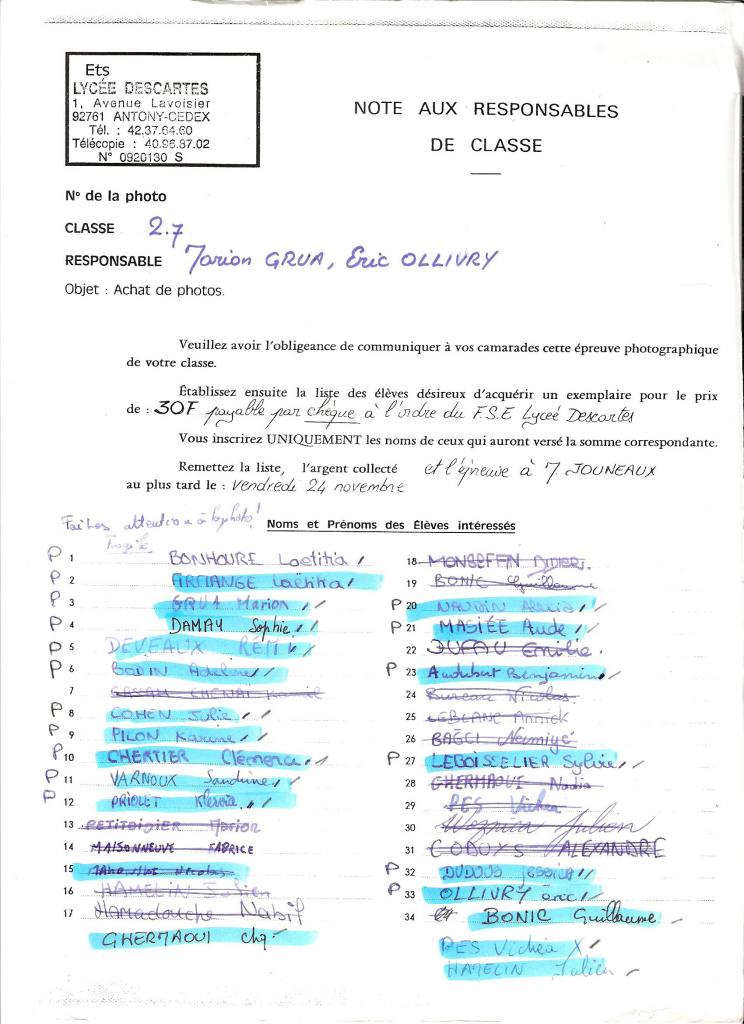 Ets
LYCÉE DESCARTES
1, Avenue Lavoisier
92761 ANTONY-CEDEX
Tél. : 42.37.64.60
Télécopie : 40.96.87.02
N° 0920130 S
NOTE AUX RESPONSABLES
DE CLASSE
Nº de la photo
CLASSE 2.7
RESPONSABLE Marion GRUA, Eric OLLIVRY
Objet : Achat de photos.
Veuillez avoir l'obligeance de communiquer à vos camarades cette épreuve photographique
de votre classe.
Établissez ensuite la liste des élèves désireux d'acquérir un exemplaire pour le prix
de : 30F payable par chèque à l'ordre du F.S.E Lyceé Descartes
Vous inscrirez UNIQUEMENT les noms de ceux qui auront versé la somme correspondante.
Remettez la liste, l'argent collecté et l'épreuve à JOUNEAUX
au plus tard le : vendredi 24 novembre
Faites attention à la photo!
Fragile
Noms et Prénoms des Élèves intéressés
P 1 BONHOURE Laetitia
P 2 Laëtitia
P 3 GRUA Marion
P 4 DAMAY Sophie
P 5 DEVEAUX RÉMI
P 6 BODIN Adeline
7
P 8 COHEN Julie
P 9 PILON Karine
P 10 CHERTIER Clémence
P 11 VARNOUX Sandrine
P 12 PRIOLET
13 Marion
14 MAISONNEUVE FABRICE
15 Nicolas
16 HAMELIN Julien
17 Hamadouche Nabil
GHERMAOUI
18
19 BONIC Guillaume
P 20 NAUDIN
P 21 MASIÉE Aude
22 Emilie.
P 23 Audubert Benjamin
24 Bureau Nicolas.
25 LEBLANC Annick
26
P 27 LEGOISSELIER Sylvie
28 GHERMAOUI Nadia
29 PES Vichea
30 Julien
31 ALEXANDRE
P 32 Jessica
P 33 OLLIVRY éric
34 BONIC Guillaume
PES Vichea X
HAMELIN Julien